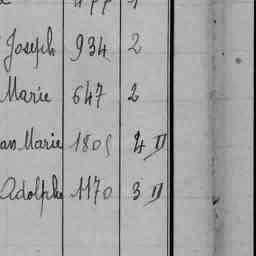 Joseph 934 2
Marie 647 2
Marie 1805 4 II
Adolphe 1170 3 II